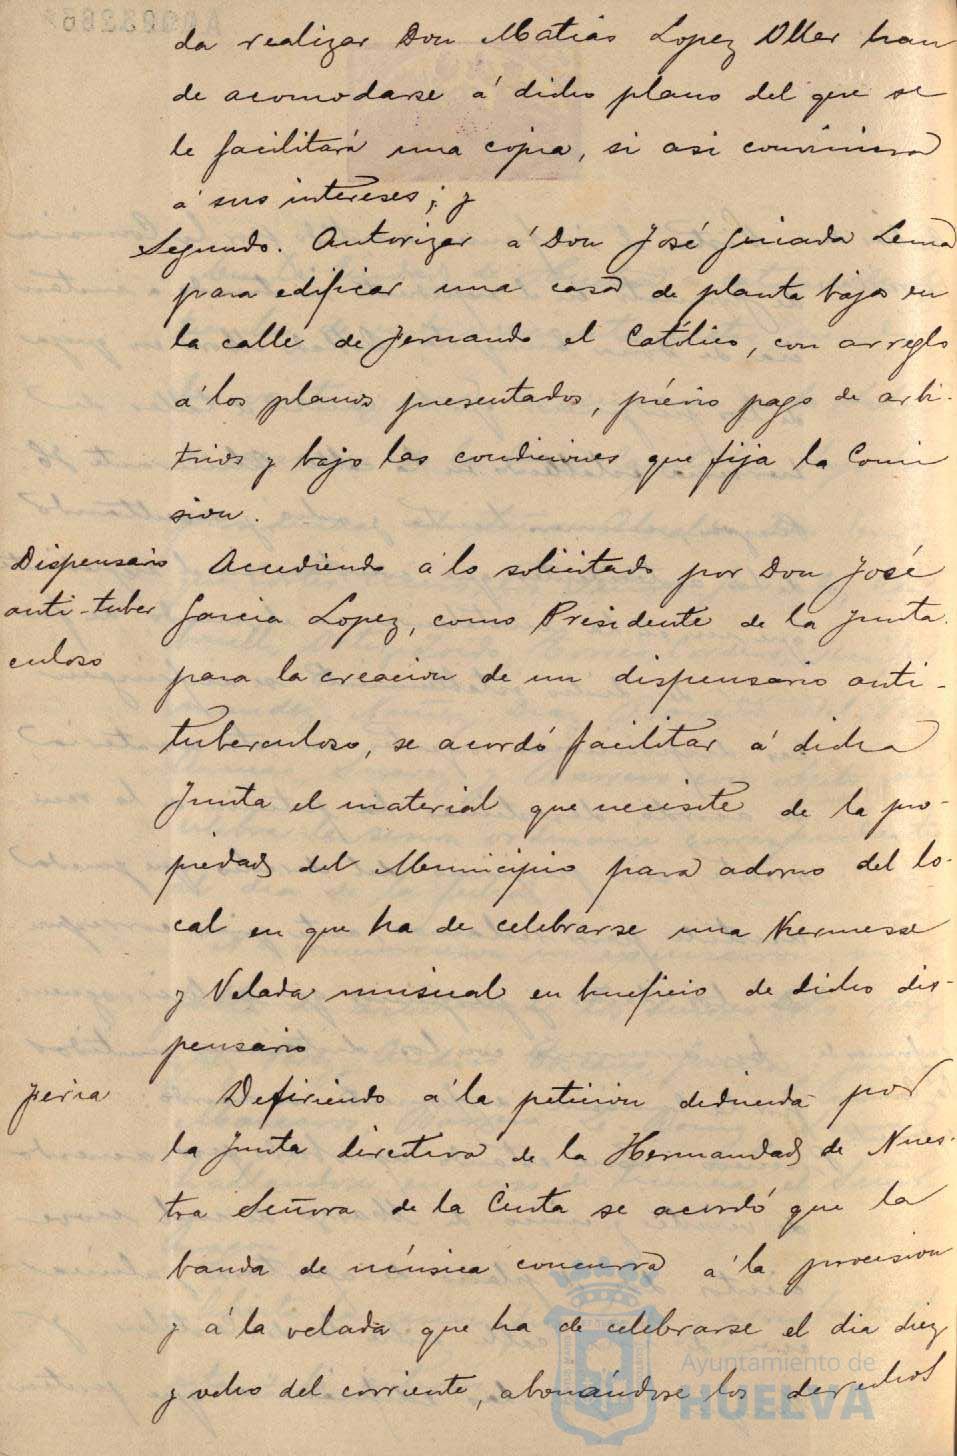 da realizar Don Matias Lopez Oller han
de acomodarse á dicho plano del que se
le facilitará una copia, si asi conviniera
á sus intereses; y
Segundo. Autorizar á Don José Lema
para edificar una casa de planta baja en
la calle de Fernando el Católico, con arreglo
á los planos presentados, prévio pago de arbi-
trios y bajo las condiciones que fija la Comi
sion.
Dispensario
anti-tuber
culoso
Accediendo á lo solicitado por Don José
Garcia Lopez, como Presidente de la Junta
para la creacion de un dispensario anti-
tuberculoso, se acordó facilitar á dicha
Junta el material que necesite de la pro-
piedad del Municipio para adorno del lo-
cal en que ha de celebrarse una Kermesse
y Velada musical en beneficio de dicho dis-
pensario
Feria
Defiriendo á la peticion deducida por
la Junta directiva de la Hermandad de Nues-
tra Señora de la Cinta se acordó que la
banda de música concurra á la procesion
y á la velada que ha de celebrarse el dia diez
y ocho del corriente, abonándose los derechos
Ayuntamiento de
HUELVA